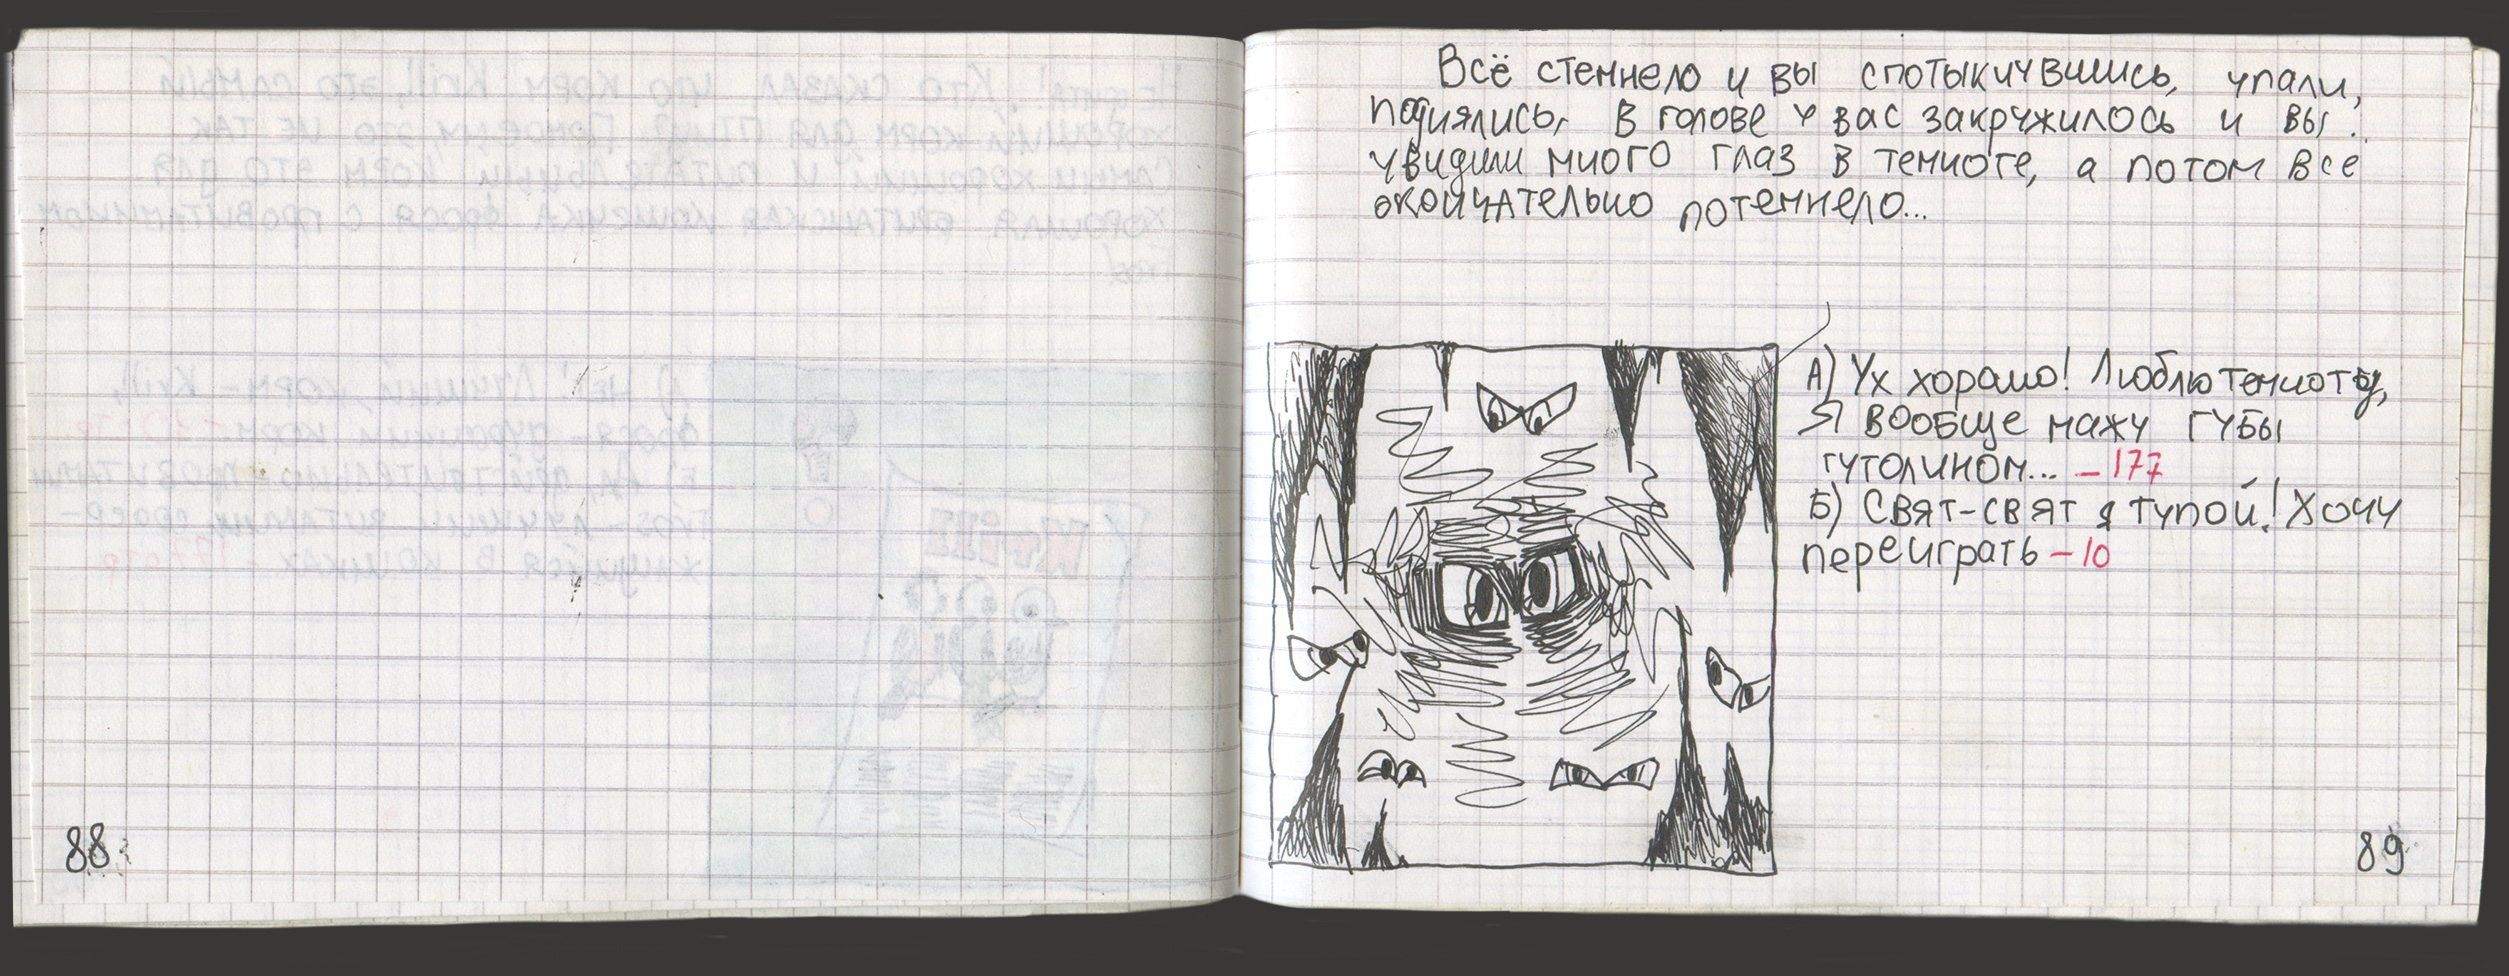 Всё стемнело и вы спотыкнувшись, упали,
поднялись, в голове у вас закружилось и вы
увидели много глаз в темноте, а потом все
окончательно потемнело...
А) Ух хорашо! Люблю темноту,
Я вообще мажу губы
гуголином... - 177
Б) Свят-свят я тупой! Хочу
переиграть - 10
88
89